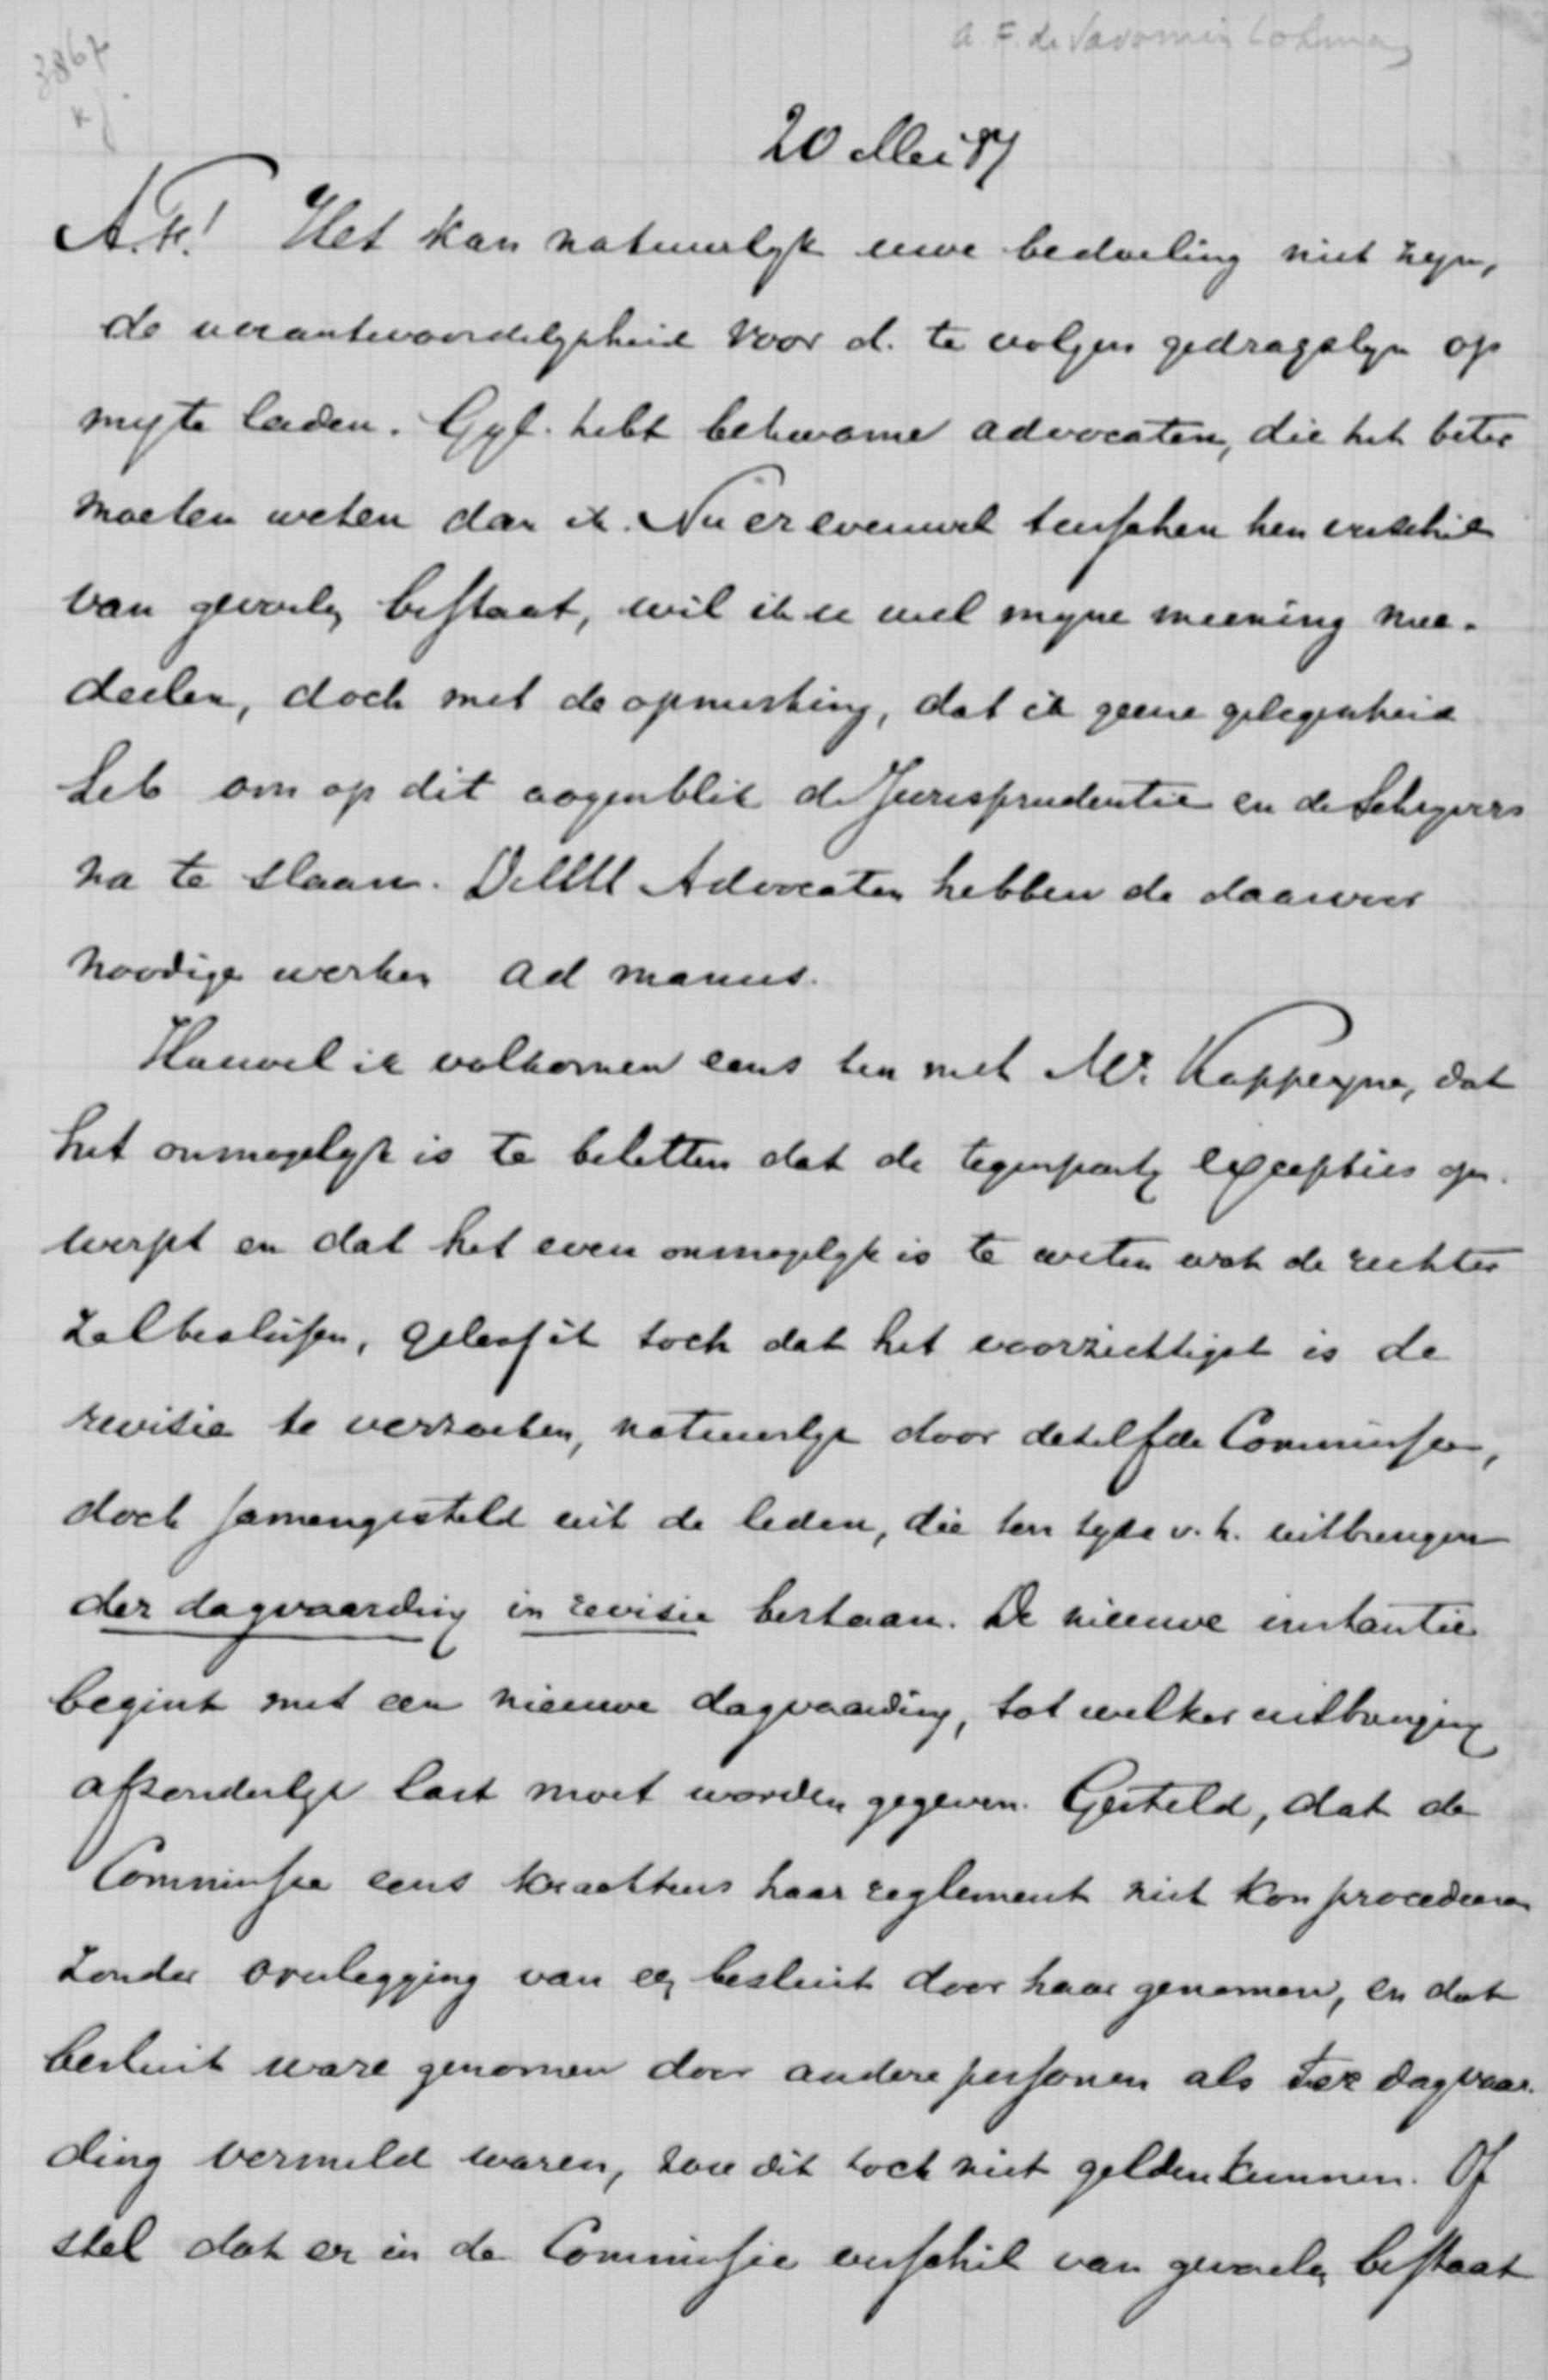 A. F. de Savornin Lohman
3867
20 Mei 87
A.K! Het kan natuurlyk uwe bedoeling niet zyn,
de verantwoordelykheid voor d. te volgen gedragslyn op
my te laden. Gyl. hebt bekwame advocaten, die het beter
moeten weten dan ik. Nu er evenwel tusschen hen verschil
van gevoelen bestaat, wil ik u wel myne meening mee-
deelen, doch met de opmerking, dat ik geene gelegenheid
heb om op dit oogenblik de Jurisprudentie en de Schryvers
na te slaan. De HH Advocaten hebben de daarvoor
noodige werken ad manus.
Hoewel ik volkomen eens ben met Mr. Kappeyne, dat
het onmogelyk is te beletten dat de tegenparty excepties op-
werpt en dat het even onmogelyk is te weten wat de rechter
zal beslissen, geloof ik toch dat het voorzichtigst is de
revisie te verzoeken, natuurlyk door dezelfde Commissie,
doch samengesteld uit de leden, die ten tyde v. h. uitbrengen
der dagvaarding in revisie bestaan. De nieuwe instantie
begint met een nieuwe dagvaarding, tot welker uitbrenging
afzonderlyk last moet worden gegeven. Gesteld, dat de
Commissie eens krachtens haar reglement niet kon procedeeren
zonder overlegging van een besluit door haar genomen, en dat
besluit ware genomen door andere personen als ter dagvaar-
ding vermeld waren, zou dit toch niet gelden kunnen. Of
stel dat er in de Commissie verschil van gevoelen bestaat